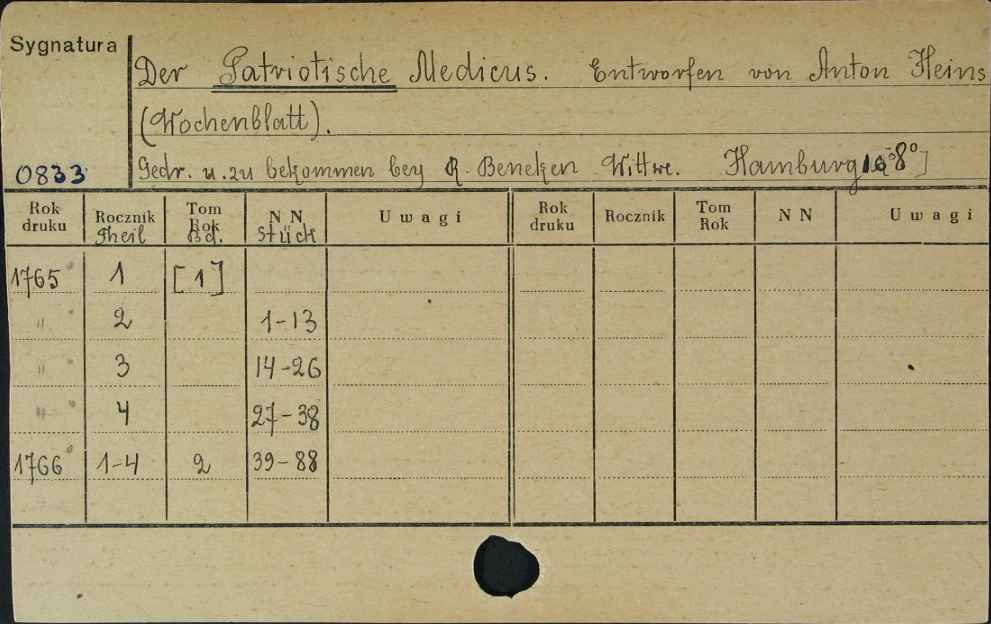 Sygnatura
Der Patriotische Medicus. Entworfen von Anton Heins
(Wochenblatt).
0833
Gedr. u. zu bekommen bey R. Beneken Wittwe. Hamburg 8°]
Rok druku Rocznik Theil Tom Rok Bd. N N Stück Uwagi Rok druku Rocznik Tom Rok N N Uwagi
1765 1 [1]
" 2 1-13
" 3 14-26
" 4 27-38
1766 1-4 2 39-88